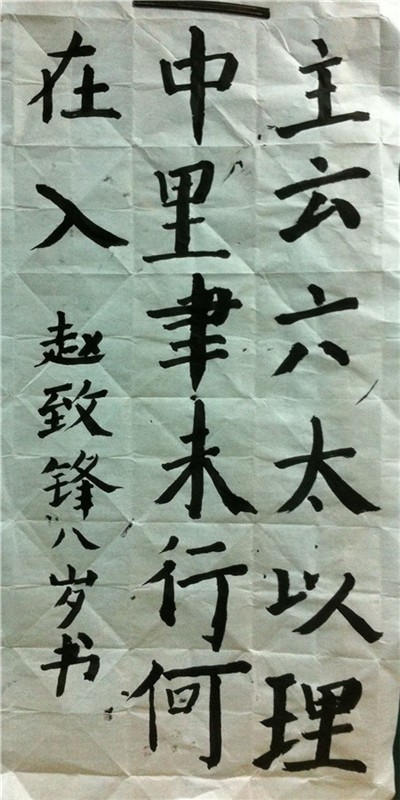 主云六太以理
中里聿未行何
在入
赵致锋八岁书